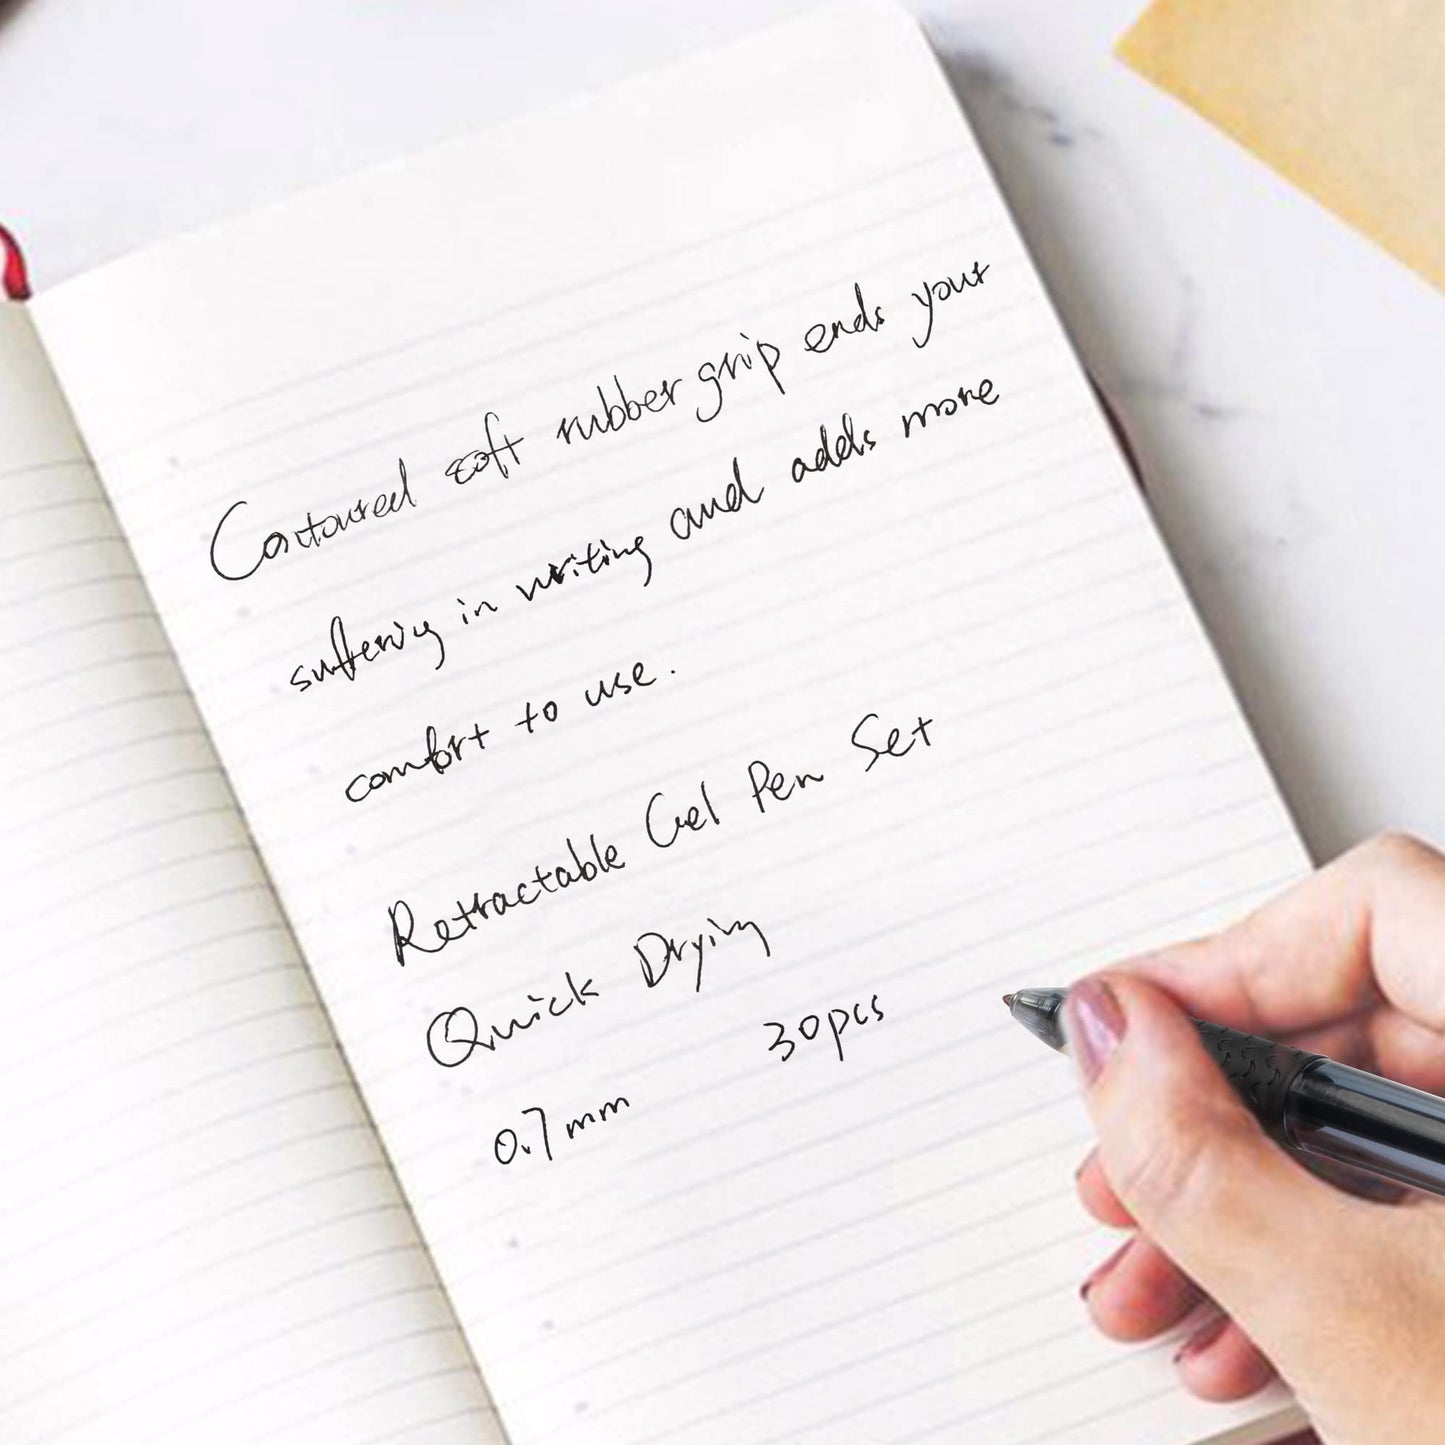 Contoured soft rubber grip ends your
suffering in writing and adds more
comfort to use.
Retractable Gel Pen Set
Quick Drying
0.7mm 30pcs